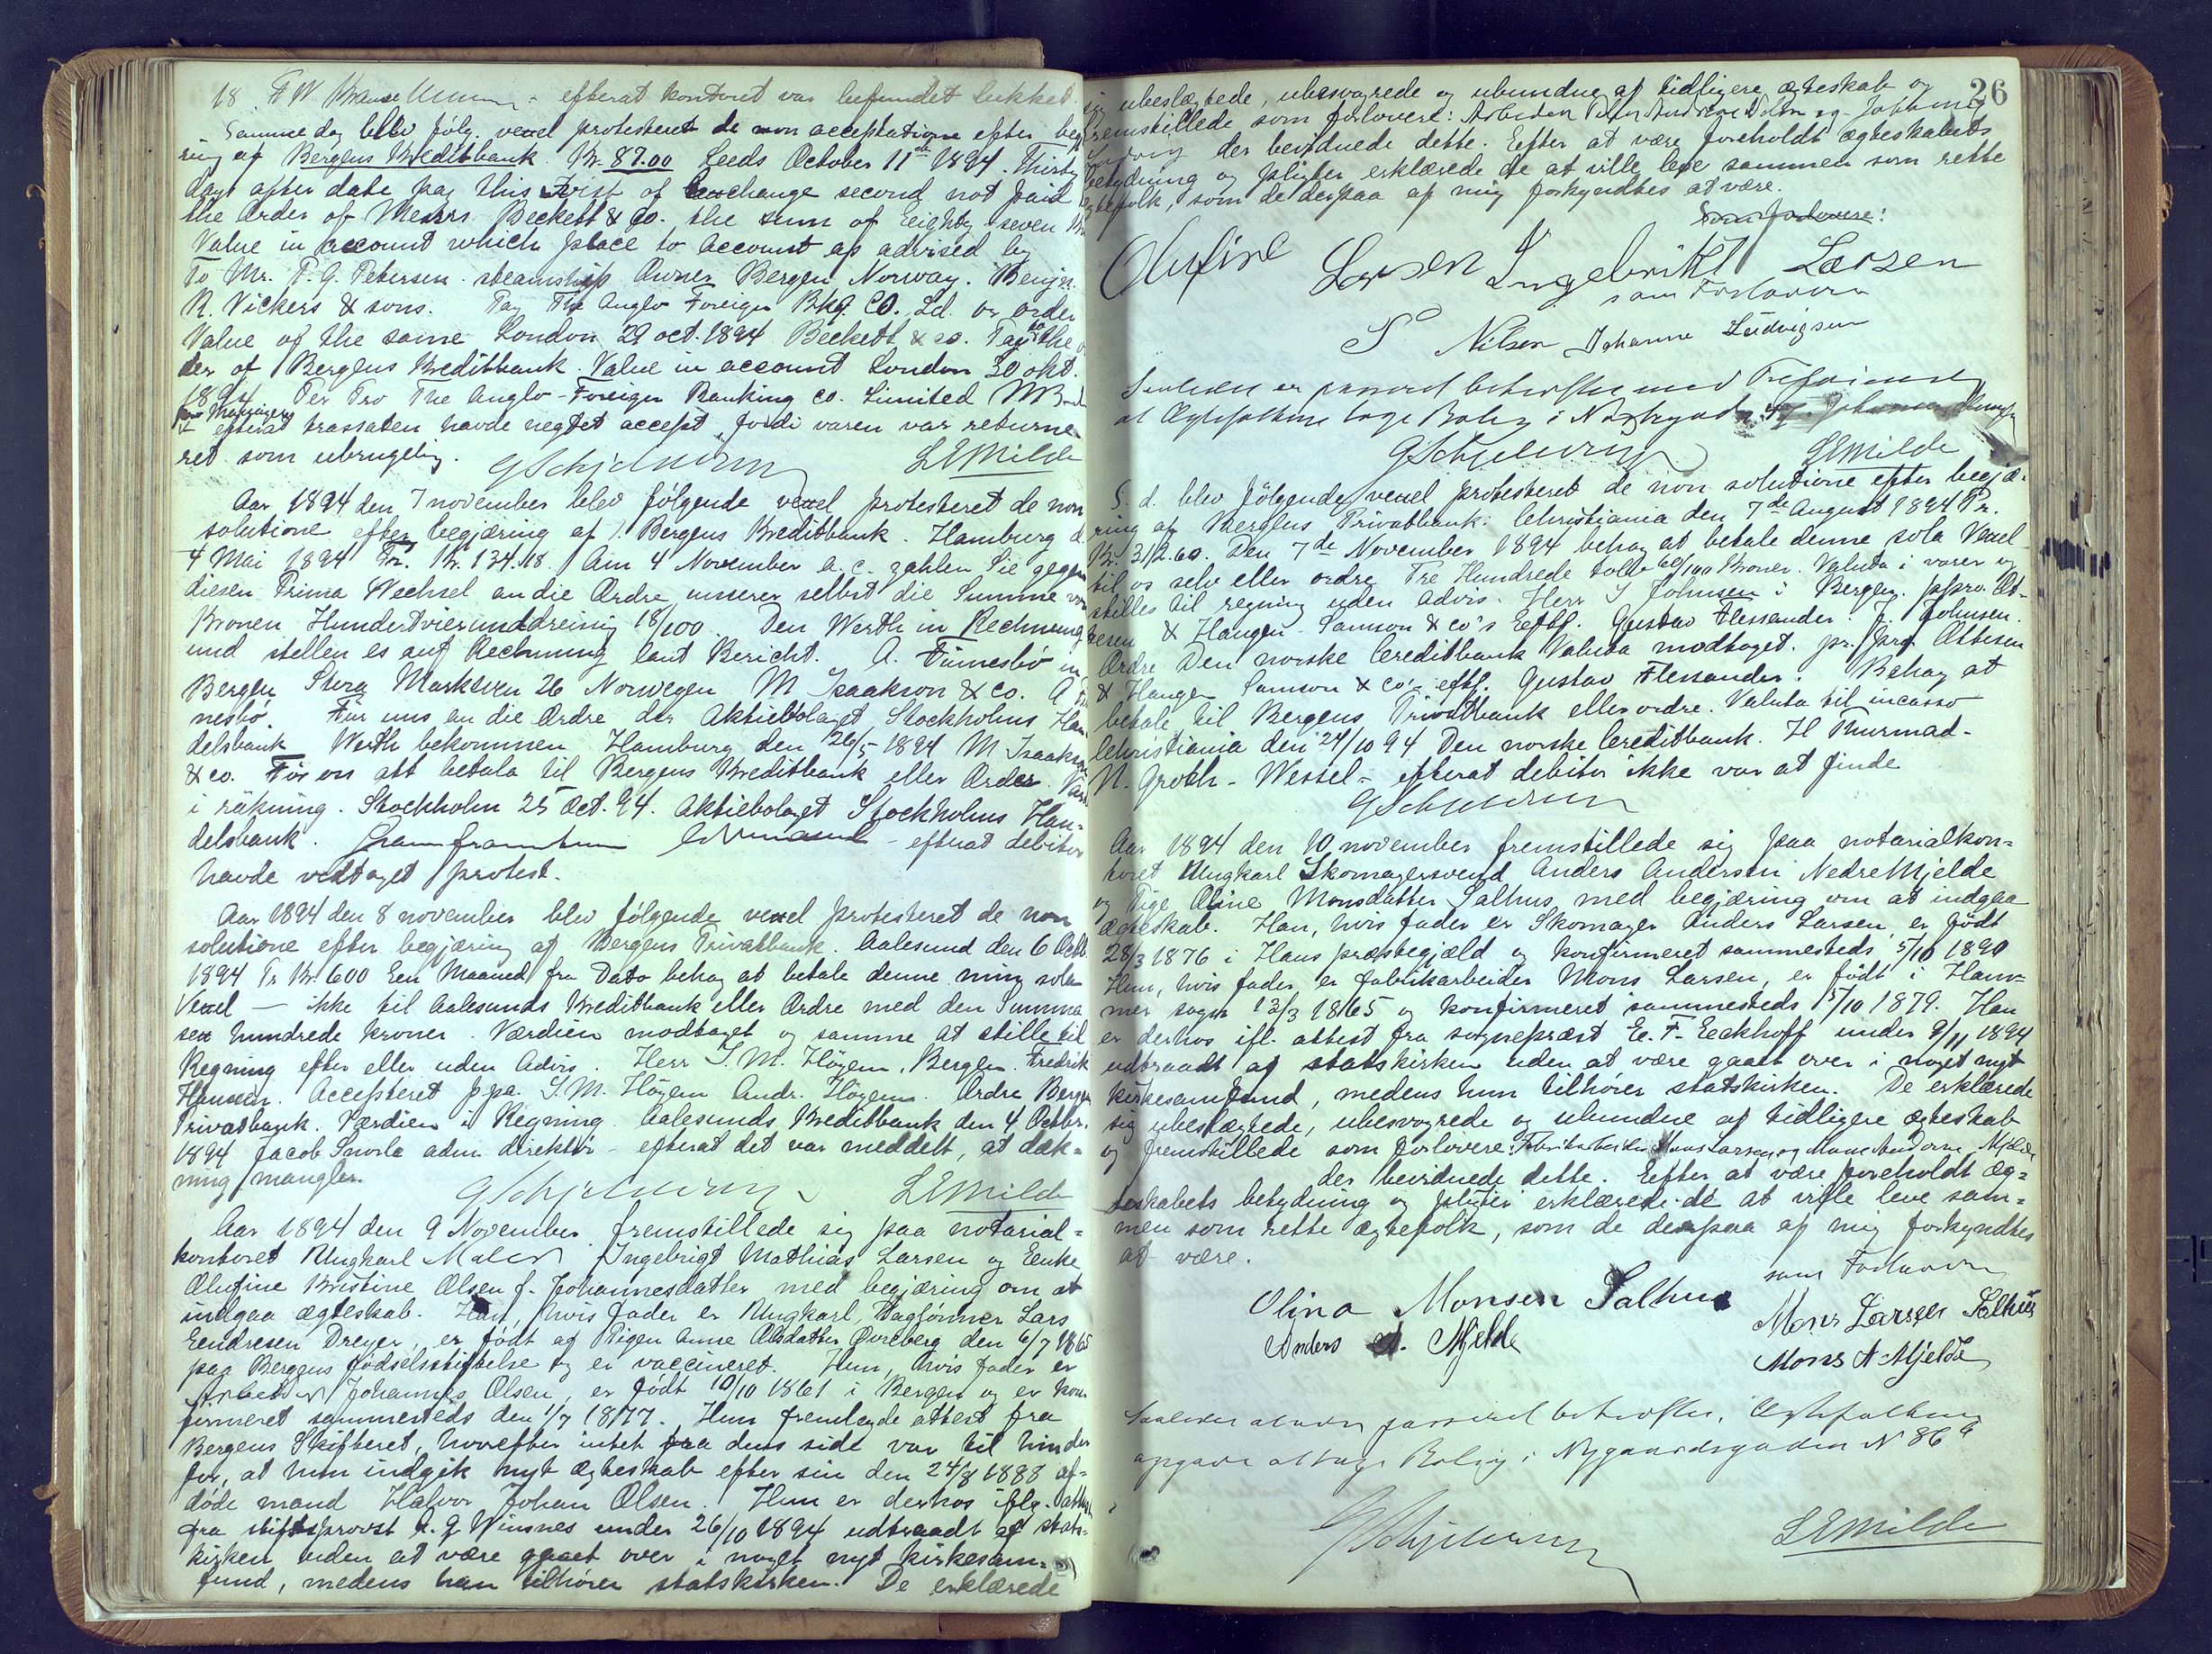 18. F W Krause - efterat kontoret var befundet lukket.
Samme dag blev følg. vexel protesteret de non acceptatione efter begjæ
ring af Bergens Kreditbank. Kr. 87.00 Leeds October 11th 1894. Thirty
days after date pay this First of exchange second not paid
the Order of Messrs. Beckett & Co. the sum of Eighty seven Kr
Value in account which place to account as advised by
To Mr. P. G. Petersen steamship Owner Bergen Norway. Benjn.
R. Vickers & sons. Pay The Anglo Foreign Bkg. Co. Ld. or order
Value of the same London 29 oct. 1894 Beckett & co. Pay to the or
der of Bergens Kreditbank. Value in account London 30 okt.
1894 Per Pro The Anglo-Foreign Banking co. Limited
Manager
- efterat trassaten havde negtet accept, fordi varen var returne
ret som ubrugelig.
LEMilde
Aar 1894 den 7 november blev følgende vexel protesteret de non
solutione efter begjæring af Bergens Kreditbank. Hamburg d.
4 Mai 1894 Pr. Kr. 134.18. Am 4 November a. c. zahlen Sie gegen
diesen Prima Wechsel an die Ordre unserer selbst die Summe von
Kronen Hundertvierunddreisig 18/100. Den Werth in Rechnung
und stellen es auf Rechnung laut Bericht. A. Fimesbö in
Bergen Stora Marksven 26 Norwegen M Isaakson & Co. A Fi
nesbö. Für uns an die Ordre der Aktiebolaget Stockholms Han
delsbank Werth bekommen Hamburg den 26/5 1894 M Isaakson
& co. För oss att betala til Bergens Kreditbank eller Order. Värd
i räkning. Stockholm 25 Oct. 94. Aktiebolaget Stockholms Han-
delsbank. - efterat debitor
havde vedtaget protest.
Aar 1894 den 8 november blev følgende vexel protesteret de non
solutione efter begjæring af Bergens Privatbank. Aalesund den 6 Octb.
1894 Pr Kr. 600 Een Maaned fra Dato behag at betale denne min sola
Vexel — ikke til Aalesunds Kreditbank eller Ordre med den Summa
sex hundrede kroner. Værdien modtaget og samme at stille til
Regning efter eller uden Advis. Herr S. M. Høyem, Bergen. Fredrik
Hansen. Accepteret ppa. S. M. Höyem Andr. Höyem. Ordre Bergens
Privatbank. Værdien i Regning. Aalesunds Kreditbank den 4 Octbr.
1894 Jacob Snorle adm direktör - efterat det var meddelt, at dæk-
ning mangler.
LEMilde
Aar 1894 den 9 November fremstillede sig paa notarial-
kontoret Ungkarl Maler Ingebrigt Mathias Larsen og Enke
Olufine Kristine Olsen f. Johannesdatter med begjæring om at
indgaa ægteskab. Han, hvis fader er Ungkarl, Dagjønner Lars
Eendresen Dreyer, er født af Pigen Anne Olsdatter Øvreberg den 6/7 1865
paa Bergens fødselsstiftelse og er vaccineret. Hun, hvis fader er
Arbeider Johannes Olsen, er født 10/10 1861 i Bergen og er kon
firmeret sammesteds den 1/7 1877. Hun fremlagde attest fra
Bergens Skifteret, hvorefter intet fra dens side var til hinder
for, at hun indgik nyt ægteskab efter sin den 24/8 1888 af-
døde mand Halvor Johan Olsen. Hun er derhos iflg. attest
fra stiftsprovst A. g. Winsnes under 26/10 1894 udtraadt af stats-
kirken uden at være gaaet over i noget nyt kirkesam-
fund, medens han tilhører statskirken. De erklærede
26
sig ubeslægtede, ubesvogrede og ubundne af tidligere ægteskab og
fremstillede som forlovere: Arbeider Peter Andreas og Johanne
der bevidnede dette. Efter at være foreholdt ægteskabets
betydning og pligter erklærede de at ville leve sammen som rette
ægtefolk, som de derpaa af mig forkyndtes at være.
Som forlovere:
Olufine Larsen Ingebrikt Larsen
som Forlovere
P Nilsen Johanne Ludvigsen
Saaledes er passeret bekræftes med Tilføiende
at Ægtefolkene tage Bolig i
LEMilde
S. d. blev følgende vexel protesteret de non solutione efter begjæ-
ring af Bergens Privatbank: Christiania den 7de August 1894 Pr.
Kr. 312.60. Den 7de November 1894 behag at betale denne sola Vexel
til os selv eller ordre Tre Hundrede tolv 60/100 Kroner. Valuta i varer og
stilles til regning uden advis. Herr J Johnsen i Bergen. ppro. Ot-
tesen & Haugen - Samson & co's Eeftf. Gustav Flessander. J. Johnsen.
Ordre Den norske Creditbank Valuta modtaget. pr. pro Ottesen
& Haugen Samson & Co's eftf. Gustav Flessander. Behag at
betale til Bergens Privatbank eller ordre. Valuta til incasso
Christiania den 24/10 94 Den norske Creditbank. H Thurmad-
N. Groth - Wessel - efterat debitor ikke var at finde
Aar 1894 den 10 november fremstillede sig paa notarialkon-
toret Ungkarl Skomagersvend Anders Andersen NedreMjelde
og Pige Oline Monsdatter Salhus med begjæring om at indgaa
ægteskab. Han, hvis fader er Skomager Anders Larsen, er født
28/3 1876 i Haus præstegjæld og konfirmeret sammesteds 5/10 1890
Hun, hvis fader er fabrikarbeider Mons Larsen, er født i Ham-
mer sogn 13/3 1865 og konfirmeret sammesteds 5/10 1879. Han
er derhos ifl. attest fra sognepræst E. F. Eeckhoff under 9/11 1894
udtraadt af statskirken uden at være gaaet over i noget nyt
kirkesamfund, medens hun tilhører statskirken. De erklærede
sig ubeslægtede, ubesvogrede og ubundne af tidligere ægteskab
og fremstillede som forlovere: Fabrikarbeider Mons Larsen og Mons Andersen Mjelde
der bevidnede dette. Eefter at være foreholdt æg-
teskabets betydning og pligter erklærede de at ville leve sam-
men som rette ægtefolk, som de derpaa af mig forkyndtes
at være.
som Forlovere
Olina Monsen Salhus
Mons Larsen Salhus
Anders A. Mjelde
Mons A Mjelde
Saaledes at være passeret bekræftes. Ægtefolkene
opgave at tage Bolig i Nygaardsgaden N 86 a
LEMilde